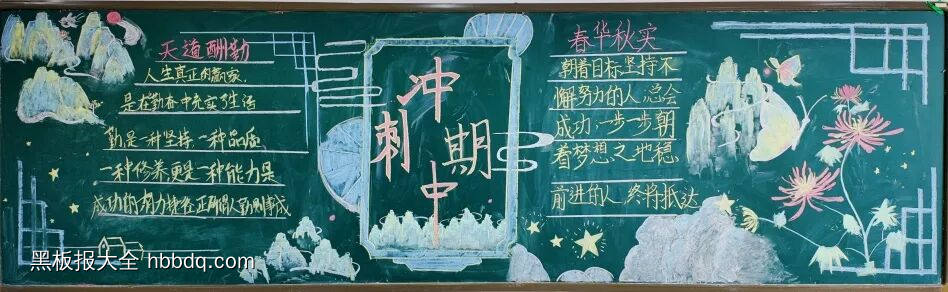 天道酬勤
人生真正的赢家,
是在勤奋中充实生活
勤,是一种坚持,一种品质,
一种修养,更是一种能力是
成功的
冲刺期中
春华秋实
朝着目标坚持不
懈努力的人,总会
成功,一步一步朝
着梦想之地稳
前进的人,终将抵达
黑板报大全 hbbdq.com